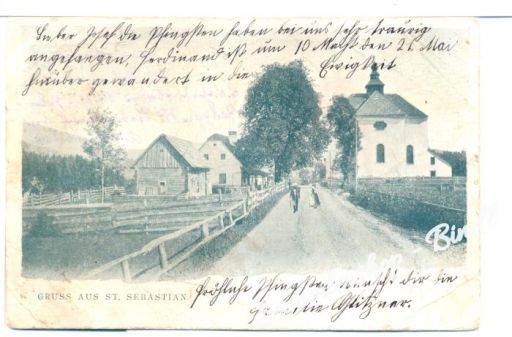 Lieber Josef die Pfingsten haben bei uns sehr traurig
angefangen. Ferdinand ist um 10 Nachts den 21 Mai
hinüber gewandert in die Ewigkeit
GRUSS AUS ST. SEBASTIAN.
Fröhliche Pfingsten wünscht dir die